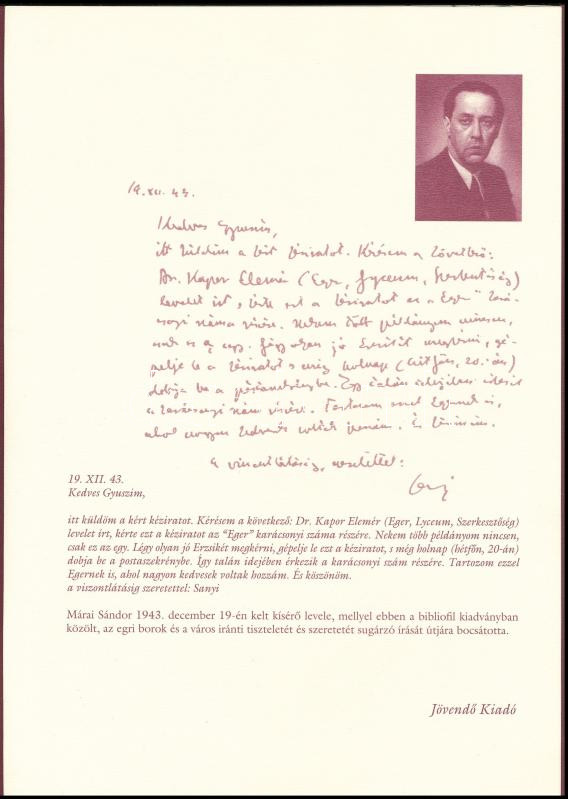 19. XII. 43.
Kedves Gyuszim,
itt küldöm a kért kéziratot. Kérésem a következő:
Dr. Kapor Elemér (Eger, Lyceum, Szerkesztőség)
levelet írt, kérte ezt a kéziratot az "Eger" kará-
csonyi száma részére. Nekem több példányom nincsen,
csak ez az egy. Légy olyan jó Erzsikét megkérni, gé-
pelje le a kéziratot s még holnap (hétfőn, 20.-án)
dobja be a postaszekrénybe. Így talán idejében érkezik
a karácsonyi szám részére. Tartozom ezzel Egernek is,
ahol nagyon kedvesek voltak hozzám. És köszönöm.
a viszontlátásig, szeretettel:
Sanyi
19. XII. 43.
Kedves Gyuszim,
itt küldöm a kért kéziratot. Kérésem a következő: Dr. Kapor Elemér (Eger, Lyceum, Szerkesztőség)
levelet írt, kérte ezt a kéziratot az “Eger” karácsonyi száma részére. Nekem több példányom nincsen,
csak ez az egy. Légy olyan jó Erzsikét megkérni, gépelje le ezt a kéziratot, s még holnap (hétfőn, 20-án)
dobja be a postaszekrénybe. Így talán idejében érkezik a karácsonyi szám részére. Tartozom ezzel
Egernek is, ahol nagyon kedvesek voltak hozzám. És köszönöm.
a viszontlátásig szeretettel: Sanyi
Márai Sándor 1943. december 19-én kelt kísérő levele, mellyel ebben a bibliofil kiadványban
közölt, az egri borok és a város iránti tiszteletét és szeretetét sugárzó írását útjára bocsátotta.
Jövendő Kiadó